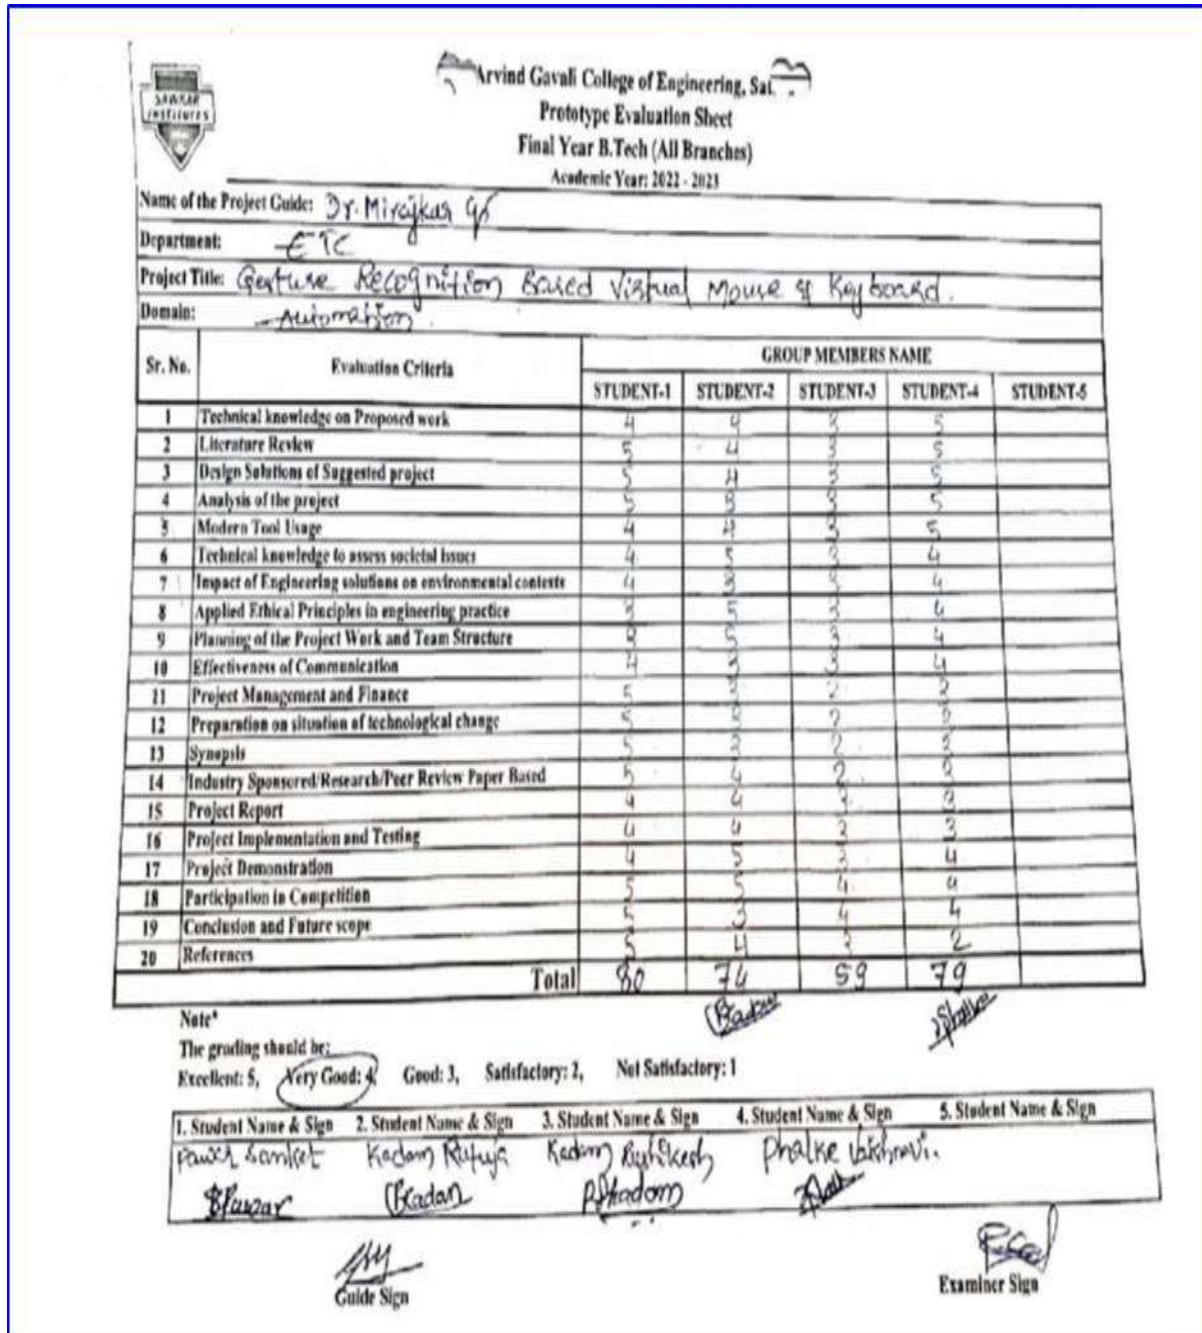 SAWKAR
INSTITUTES
Arvind Gavali College of Engineering, Sat
Prototype Evaluation Sheet
Final Year B.Tech (All Branches)
Academic Year: 2022 - 2023
Name of the Project Guide: Dr. Mirajkar
Department: ETC
Project Title: Gesture Recognition Based Virtual Mouse & Keyboard.
Domain: Automation
Sr. No. Evaluation Criteria GROUP MEMBERS NAME
STUDENT-1 STUDENT-2 STUDENT-3 STUDENT-4 STUDENT-5
1 Technical knowledge on Proposed work 4 4 3 5
2 Literature Review 5 4 3 5
3 Design Solutions of Suggested project 5 4 3 5
4 Analysis of the project 5 3 3 5
5 Modern Tool Usage 4 4 3 5
6 Technical knowledge to assess societal issues 4 5 3 4
7 Impact of Engineering solutions on environmental contexts 4 3 4
8 Applied Ethical Principles in engineering practice 3 5 3 4
9 Planning of the Project Work and Team Structure 3 5 3 4
10 Effectiveness of Communication 4 3 3 4
11 Project Management and Finance 5 3 2 3
12 Preparation on situation of technological change 5 3 2 3
13 Synopsis 5 3 2 3
14 Industry Sponsored/Research/Peer Review Paper Based 5 4 2 3
15 Project Report 4 4 3 3
16 Project Implementation and Testing 4 4 3 3
17 Project Demonstration 4 5 3 4
18 Participation in Competition 5 5 4 4
19 Conclusion and Future scope 5 3 4 4
20 References 5 4 3 2
Total 80 74 59 79
Note*
The grading should be:
Excellent: 5, Very Good: 4, Good: 3, Satisfactory: 2, Not Satisfactory: 1
1. Student Name & Sign 2. Student Name & Sign 3. Student Name & Sign 4. Student Name & Sign 5. Student Name & Sign
Pawar Sanket Kadam Rutuja Kadam Rushikesh Phalke Vaishnavi.
Guide Sign
Examiner Sign